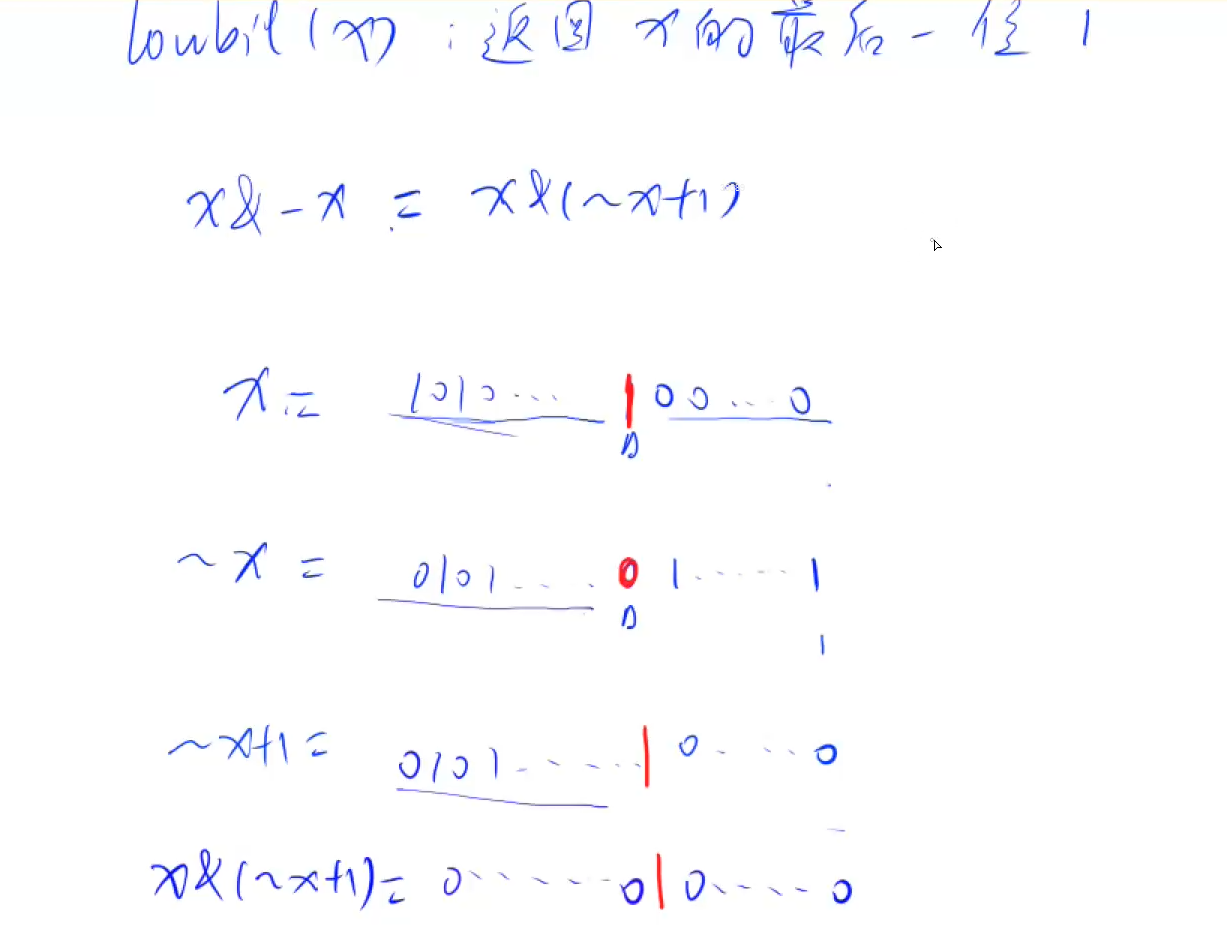 lowbit(x) : 返回 x的最后一位 1
x&-x = x&(~x+1)
x = 1010... 1 00...0
~x = 0101.... 0 1......1
1
~x+1= 0101...... 1 0....0
x&(~x+1)= 0......0 1 0.....0